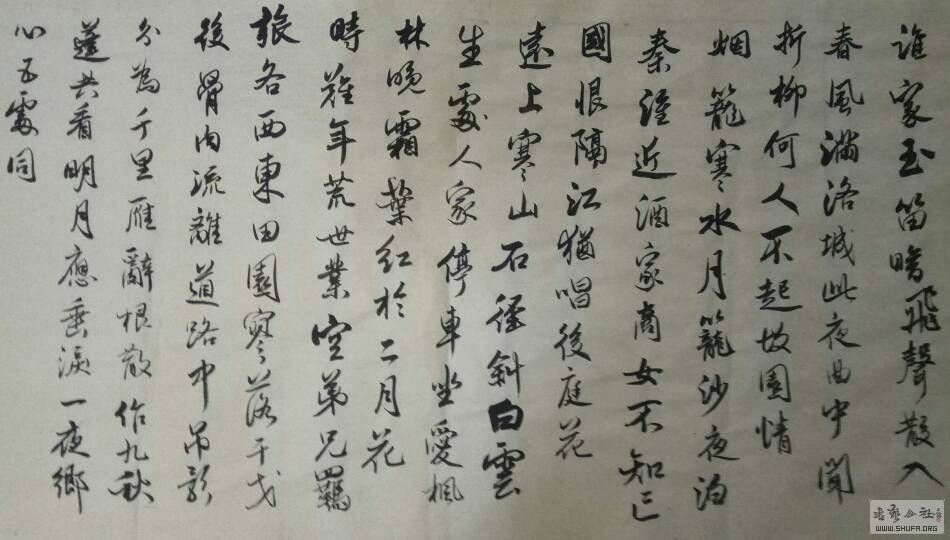 誰家玉笛暗飛聲散入
春風滿洛城此夜曲中聞
折柳何人不起故園情
烟籠寒水月籠沙夜泊
秦淮近酒家商女不知亡
國恨隔江猶唱後庭花
遠上寒山石徑斜白雲
生處人家停車坐愛楓
林晚霜葉紅於二月花
時難年荒世業空弟兄羈
旅各西東田園寥落干戈
後骨肉流離道路中吊影
分為千里雁辭根散作九秋
蓬共看明月應垂淚一夜鄉
心五處同
书法公社
WWW.SHUFA.ORG